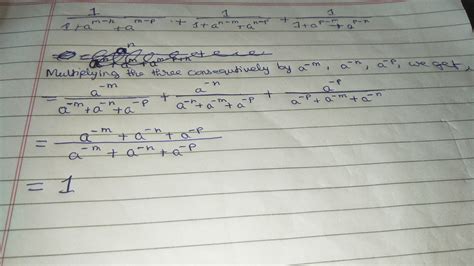 1/(1+a^{m-n}+a^{m-p}) + 1/(1+a^{n-m}+a^{n-p}) + 1/(1+a^{p-m}+a^{p-n})
Multiplying the three consequtively by a^{-m}, a^{-n}, a^{-p}, we get,
= a^{-m}/(a^{-m}+a^{-n}+a^{-p}) + a^{-n}/(a^{-n}+a^{-m}+a^{-p}) + a^{-p}/(a^{-p}+a^{-m}+a^{-n})
= (a^{-m}+a^{-n}+a^{-p})/(a^{-m}+a^{-n}+a^{-p})
= 1